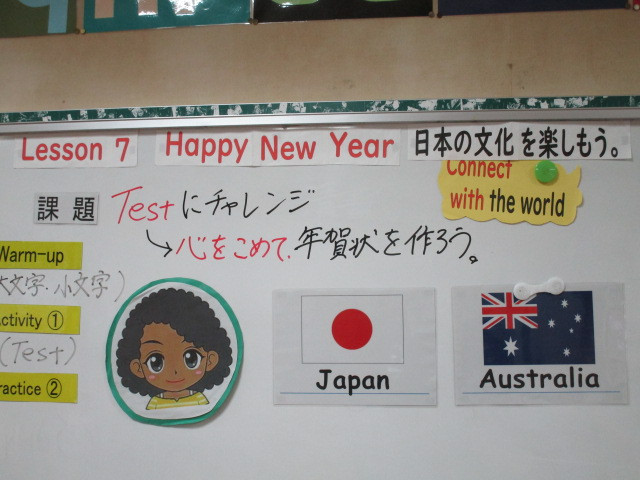 Lesson 7 Happy New Year 日本の文化を楽しもう。
Connect
with the world
課題 Testにチャレンジ
→心をこめて、年賀状を作ろう。
Warm-up
大文字・小文字)
Activity ①
(Test)
Practice ②
Japan
Australia